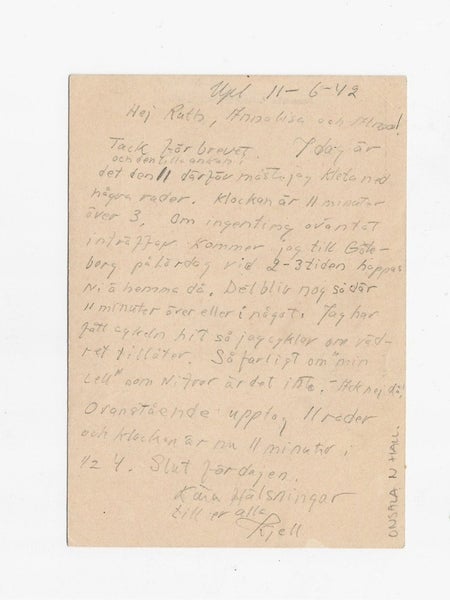 Upl 11-6-42
Hej Ruth, Annalisa och
Tack för brevet. I dag är
och den lilla ankan!
det den 11 därför måste jag kleta ned
några rader. Klockan är 11 minuter
över 3. Om ingenting oväntat
inträffar kommer jag till Göte-
borg på lördag vid 2-3 tiden hoppas
Ni ä hemma då. Det blir nog så där
11 minuter över eller i något. Jag har
fått cykeln hit så jag cyklar om väd-
ret tillåter. Så farligt om "min
cell" som Ni tror är det inte. Ack nej då!
Ovanstående upptog 11 rader
och klockan är nu 11 minuter i
1/2 4. Slut för dagen.
Kära Hälsningar
till er alla
Kjell
ONSALA N HALL.